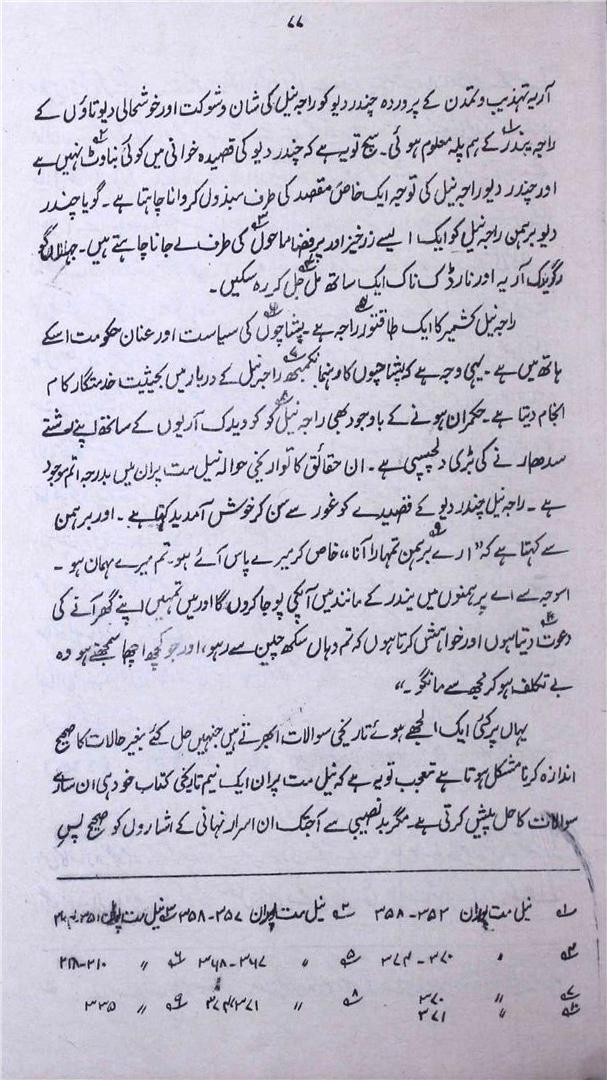 ۷۷
آریہ تہذیب و تمدن کے پروردہ چندر دیو کو راجہ نیل کی شان و شوکت اور خوشحالی دیوتاؤں کے
راجہ بندر۱ کے ہم پلہ معلوم ہوئی۔ سچ تو یہ ہے کہ چندر دیو کی قصیدہ خوانی میں کوئی بناوٹ۲ نہیں ہے
اور چندر دیو راجہ نیل کی توجہ ایک خاص مقصد کی طرف مبذول کروانا چاہتا ہے۔ گویا چندر
دیو برہمن راجہ نیل کو ایک ایسے زرخیز اور پرفضا ماحول۳ کی طرف لے جانا چاہتے ہیں۔ جہاں
رگویدک آریہ اور نارڈک ناگ ایک ساتھ مل جل کر رہ سکیں۔
راجہ نیل کشمیر کا ایک طاقتور۵ راجہ ہے۔ پشاچوں۶ کی سیاست اور عنان حکومت اسکے
ہاتھ میں ہے۔ یہی وجہ ہے کہ پشاچوں کا رہنما نکمبھ۷ راجہ نیل کے دربار میں بحیثیت خدمتگار کام
انجام دیتا ہے۔ حکمران ہونے کے باوجود بھی راجہ نیل۸ کو ویدک آریوں کے ساتھ اپنے رشتے
سدھارنے کی بڑی دلچسپی ہے۔ ان حقائق کا تواریخی حوالہ نیل مت پران میں بدرجہ اتم موجود
ہے۔ راجہ نیل چندر دیو کے قصیدے کو غور سے سن کر خوش آمدید کہتا ہے۔ اور برہمن
سے کہتا ہے کہ "ارے برہمن۹ تمہارا آنا" خاص کر میرے پاس آئے ہو۔ تم میرے مہمان ہو۔
اسوجہ سے اے برہمنوں میں بندر کے مانند میں آپکی پوجا کروں گا اور میں تمہیں اپنے گھر آنے کی
دعوت۱۰ دیتا ہوں اور خواہش کرتا ہوں کہ تم وہاں سکھ چین سے رہو، اور جو کچھ اچھا سمجھتے ہو وہ
بے تکلف ہو کر مجھ سے مانگو۔"
یہاں پر کئی ایک الجھے ہوئے تاریخی سوالات ابھرتے ہیں جنہیں حل کئے بغیر حالات کا صحیح
اندازہ کرنا مشکل ہوتا ہے تعجب تو یہ ہے کہ نیل مت پران ایک نیم تاریخی کتاب خود ہی ان سارے
سوالات کا حل پیش کرتی ہے۔ مگر بدنصیبی سے آجتک ان اسرار نہانی کے اشاروں کو صحیح پس
۱؎ نیل مت پران ۳۵۲-۳۵۸ ۲؎ نیل مت پران ۳۵۷-۳۵۸ ۳؎ نیل مت پران
۴؎ " ۳۷۰-۳۷۴ ۵؎ " ۳۶۷-۳۶۸ ۶؎ " ۲۱۰-۲۱۸
۷؎ " ۳۷۰ ۸؎ " ۹؎ " ۳۳۵
۱۰؎ " ۳۷۱